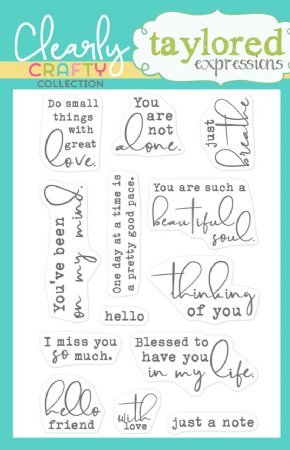 Clearly
CRAFTY
COLLECTION
taylored
expressions
Do small
things
with
great
love.
You
are
not
alone.
just
breathe
You've been
on my mind.
One day at a time is
a pretty good pace.
You are such a
beautiful
soul.
thinking
of you
hello
I miss you
so much.
Blessed to
have you
in my life.
hello
friend
with
love
just a note